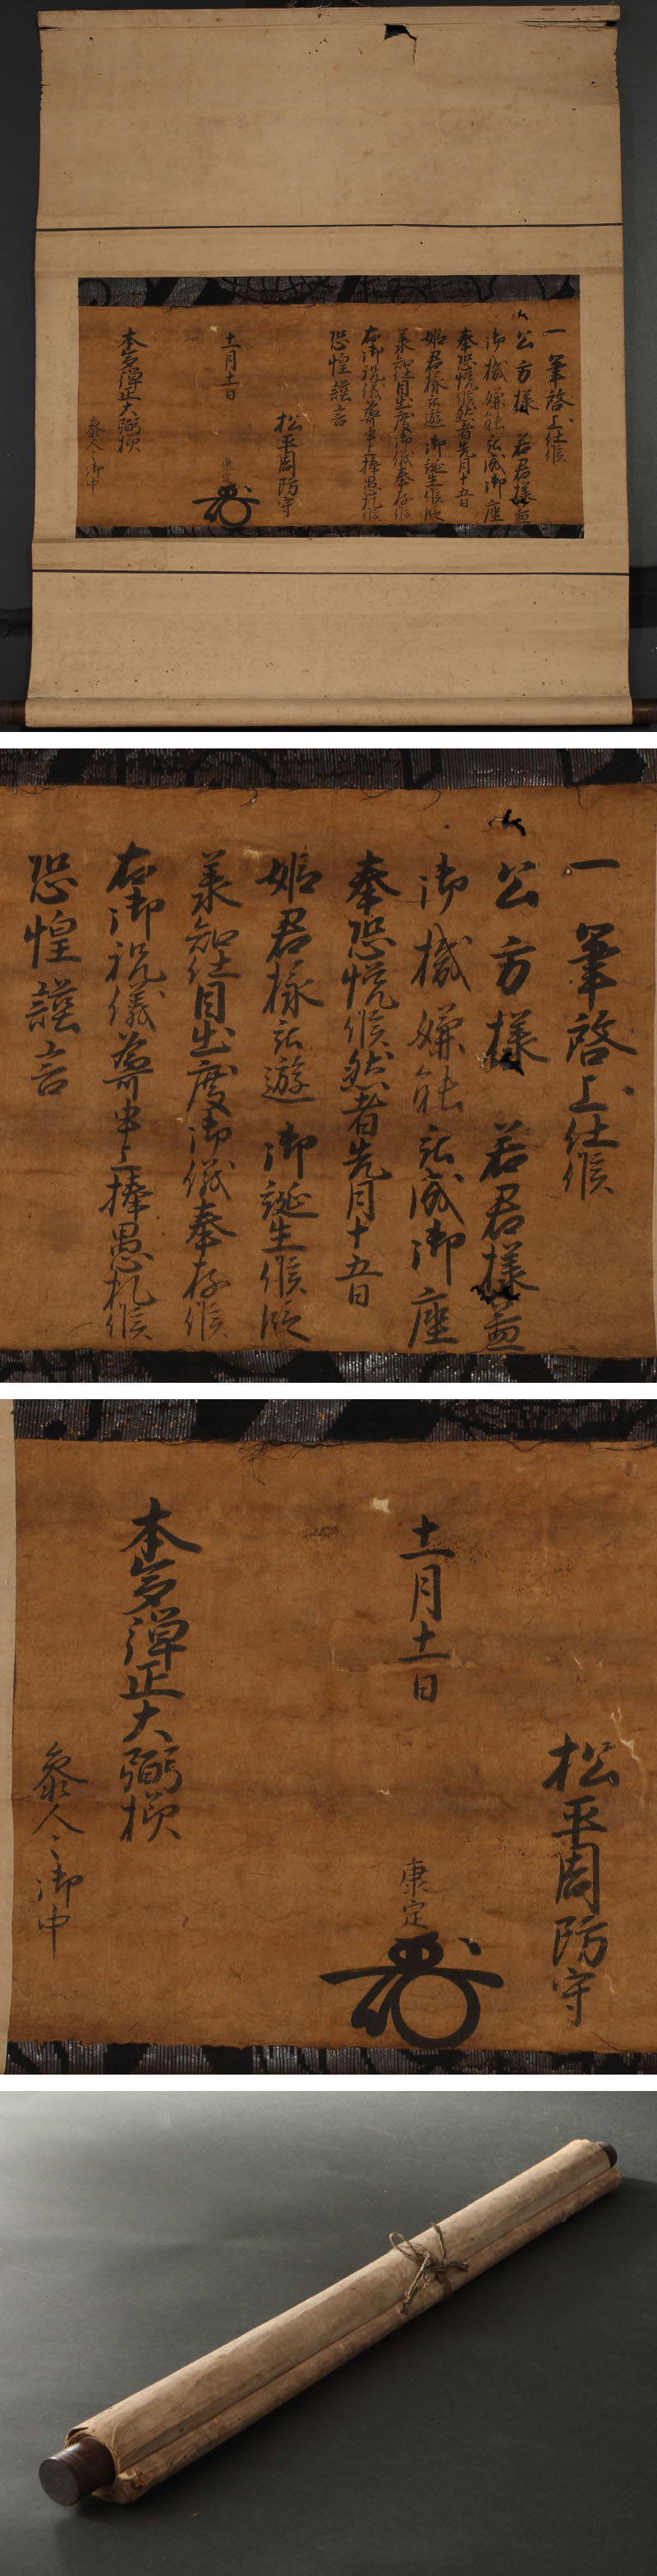 一筆啓上仕候
公方様 若君様益
御機嫌能被成御座
奉恐悦候然者先月十五日
姫君様被遊 御誕生候段
承知仕目出度御儀奉存候
右御祝儀為可申上捧愚札候
恐惶謹言
松平周防守
十一月十一日
康定
本多弾正大弼様
参人々御中